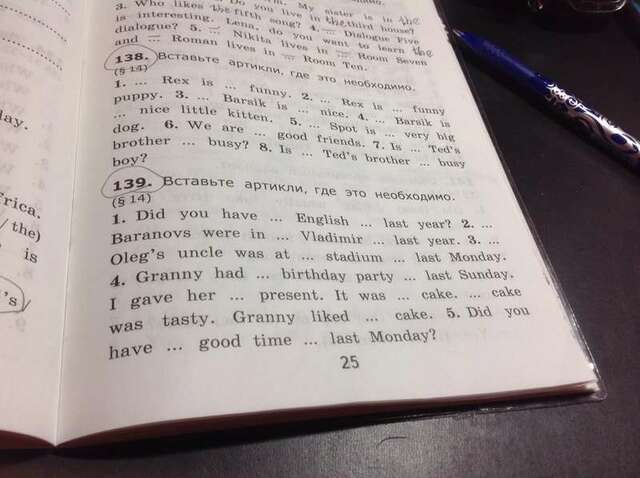 My sister is in the
3. Who likes the fifth song? 4. ... Dialogue Five
is interesting. Lena, do you want to learn the
dialogue? 5. ... Nikita lives in ... Room Seven
and ... Roman lives in ... Room Ten.
138. Вставьте артикли, где это необходимо.
(§ 14)
1. ... Rex is ... funny. 2. ... Rex is ... funny
puppy. 3. ... Barsik is ... nice. 4. ... Barsik is
... nice little kitten. 5. ... Spot is ... very big
dog. 6. We are ... good friends. 7. Is ... Ted's
brother ... busy? 8. Is ... Ted's brother ... busy
boy?
139. Вставьте артикли, где это необходимо.
(§ 14)
1. Did you have ... English ... last year? 2. ...
Baranovs were in ... Vladimir ... last year. 3. ...
Oleg's uncle was at ... stadium ... last Monday.
4. Granny had ... birthday party ... last Sunday.
I gave her ... present. It was ... cake. ... cake
was tasty. Granny liked ... cake. 5. Did you
have ... good time ... last Monday?
25
day.
frica.
/ the)
is
's